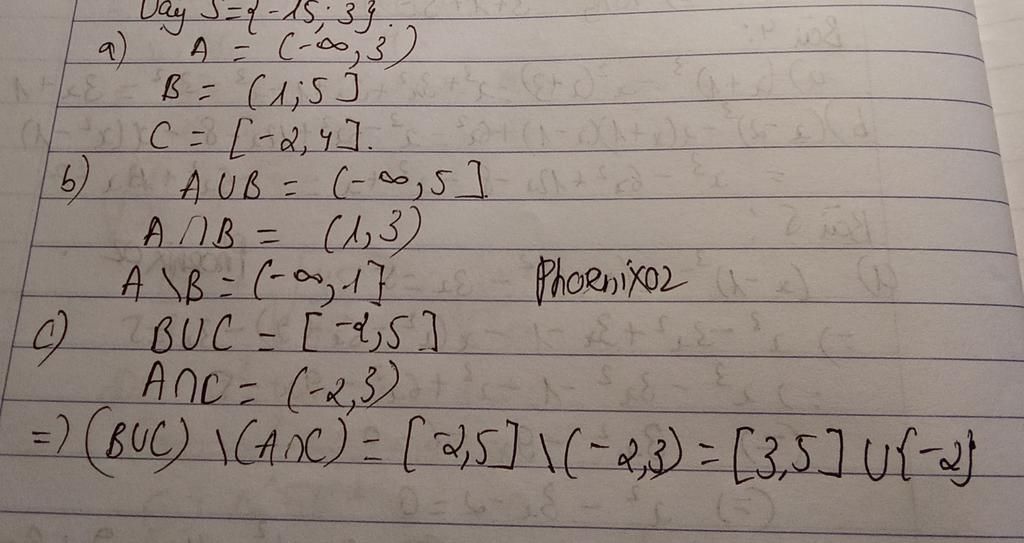 Vậy S={-15; 3}
a) A = (-∞, 3)
B = (1; 5]
C = [-2, 4].
b) A ∪ B = (-∞, 5]
A ∩ B = (1, 3)
A \ B = (-∞, 1]
Phoenix02
c) B ∪ C = [-2, 5]
A ∩ C = (-2, 3)
=> (B ∪ C) \ (A ∩ C) = [-2, 5] \ (-2, 3) = [3, 5] ∪ {-2}